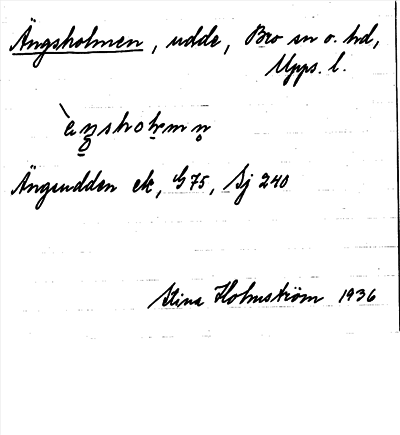 Ängsholmen, udde, Bro sn o. hd,
Upps. l.
Ängsudden ek, G 75, Sj 240
Stina Holmström 1936